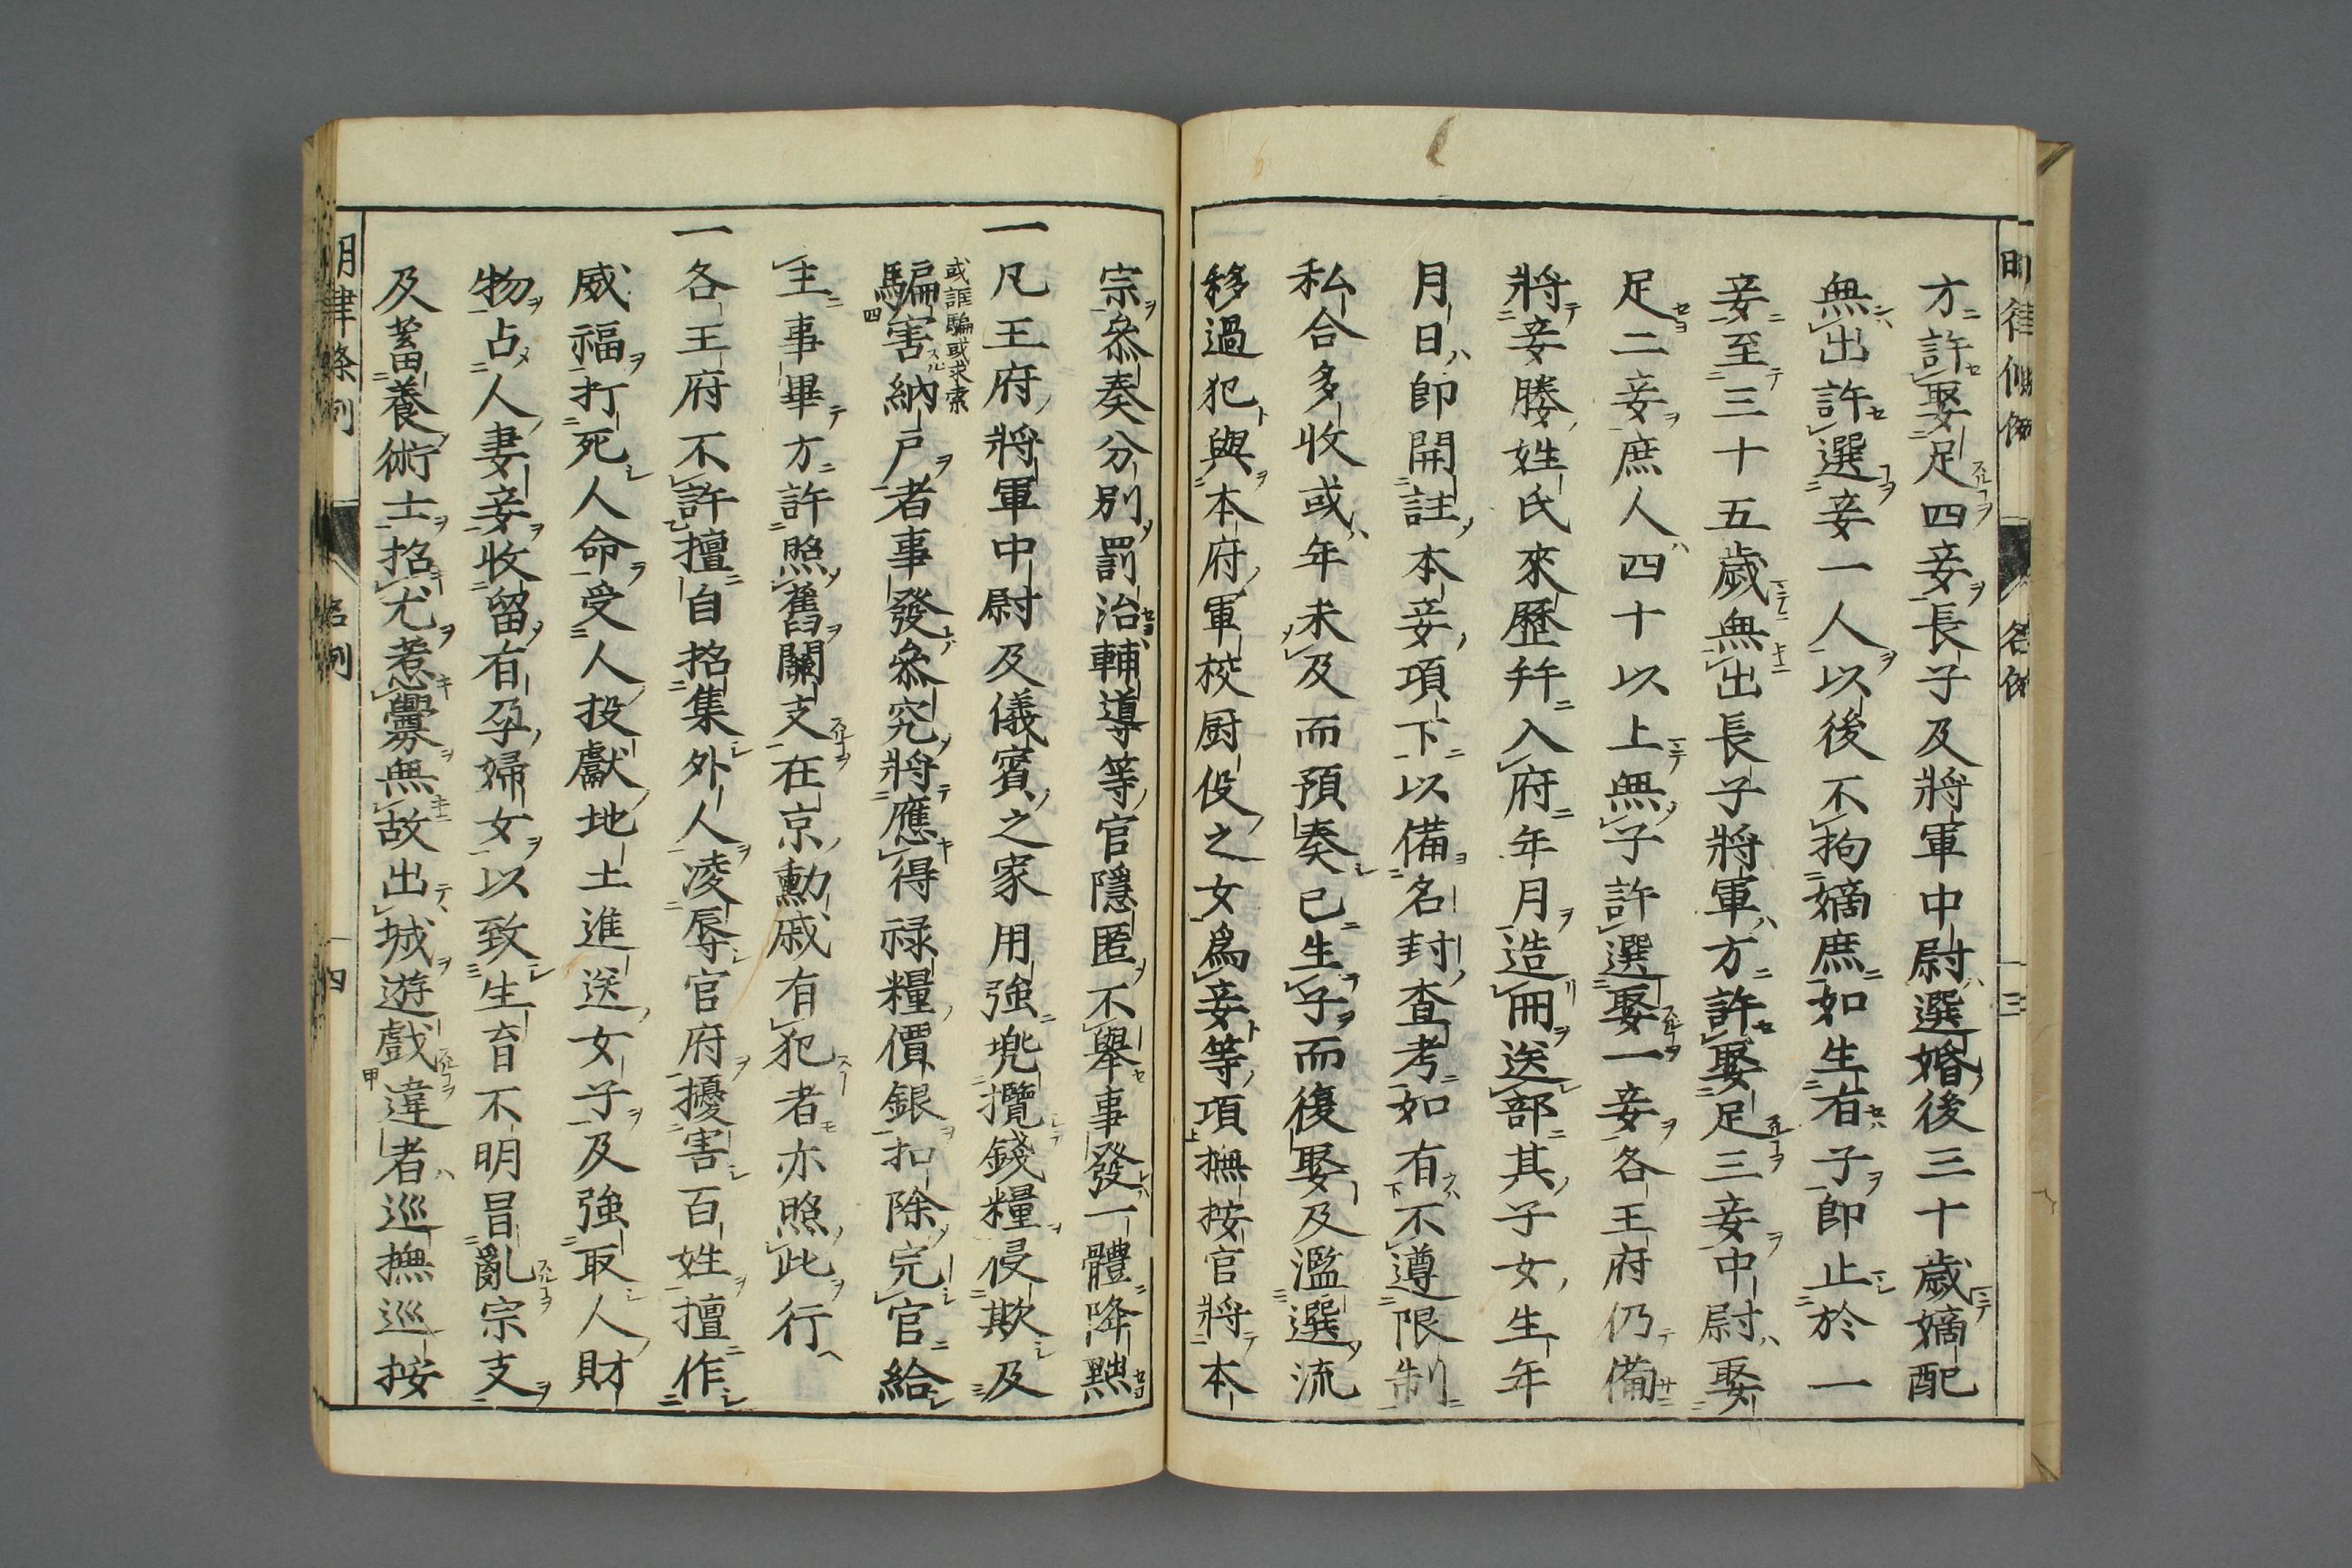 方許娶足四妾長子及將軍中尉選婚後三十歲嫡配
無出許選妾一人以後不拘嫡庶如生有子即止於一
妾至三十五歲無出長子將軍方許娶足三妾中尉娶
足二妾庶人四十以上無子許選娶一妾各王府仍備
將妾媵姓氏來歷幷入府年月造冊送部其子女生年
月日即開註本妾項下以備名封查考如有不遵限制
私合多收或年未及而預奏已生子而後娶及濫選流
移過犯與本府軍校厨役之女爲妾等項撫按官將本
宗叅奏分別罰治輔導等官隱匿不舉事發一體降黜
一凡王府將軍中尉及儀賓之家用強兠攬錢糧侵欺及
或誆騙或求索
騙害納戶者事發叅究將應得祿糧價銀扣除完官給
主事畢方許照舊關支在京勳戚有犯者亦照此行
一各王府不許擅自招集外人凌辱官府擾害百姓擅作
威福打死人命受人投獻地土進送女子及強取人財
物占人妻妾收留有孕婦女以致生育不明冒亂宗支
及蓄養術士招尤惹釁無故出城遊戲違者巡撫巡按
名例 四